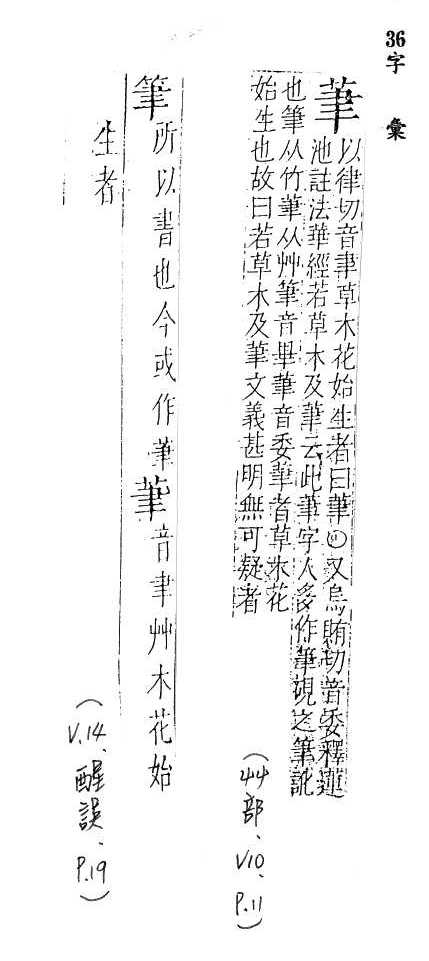 36字彙
茟 以律切音聿草木花始生者曰茟○又烏賄切音委釋蓮
池註法華經若草木及茟云此茟字人多作筆視之筆訛
也筆从竹茟从艸筆音畢茟音委茟者草木花
始生也故曰若草木及茟文義甚明無可疑者
（艸部、V10、P.11）
筆 所以書也今或作茟 茟 音聿艸木花始
生者
（V.14、醒誤、P.19）